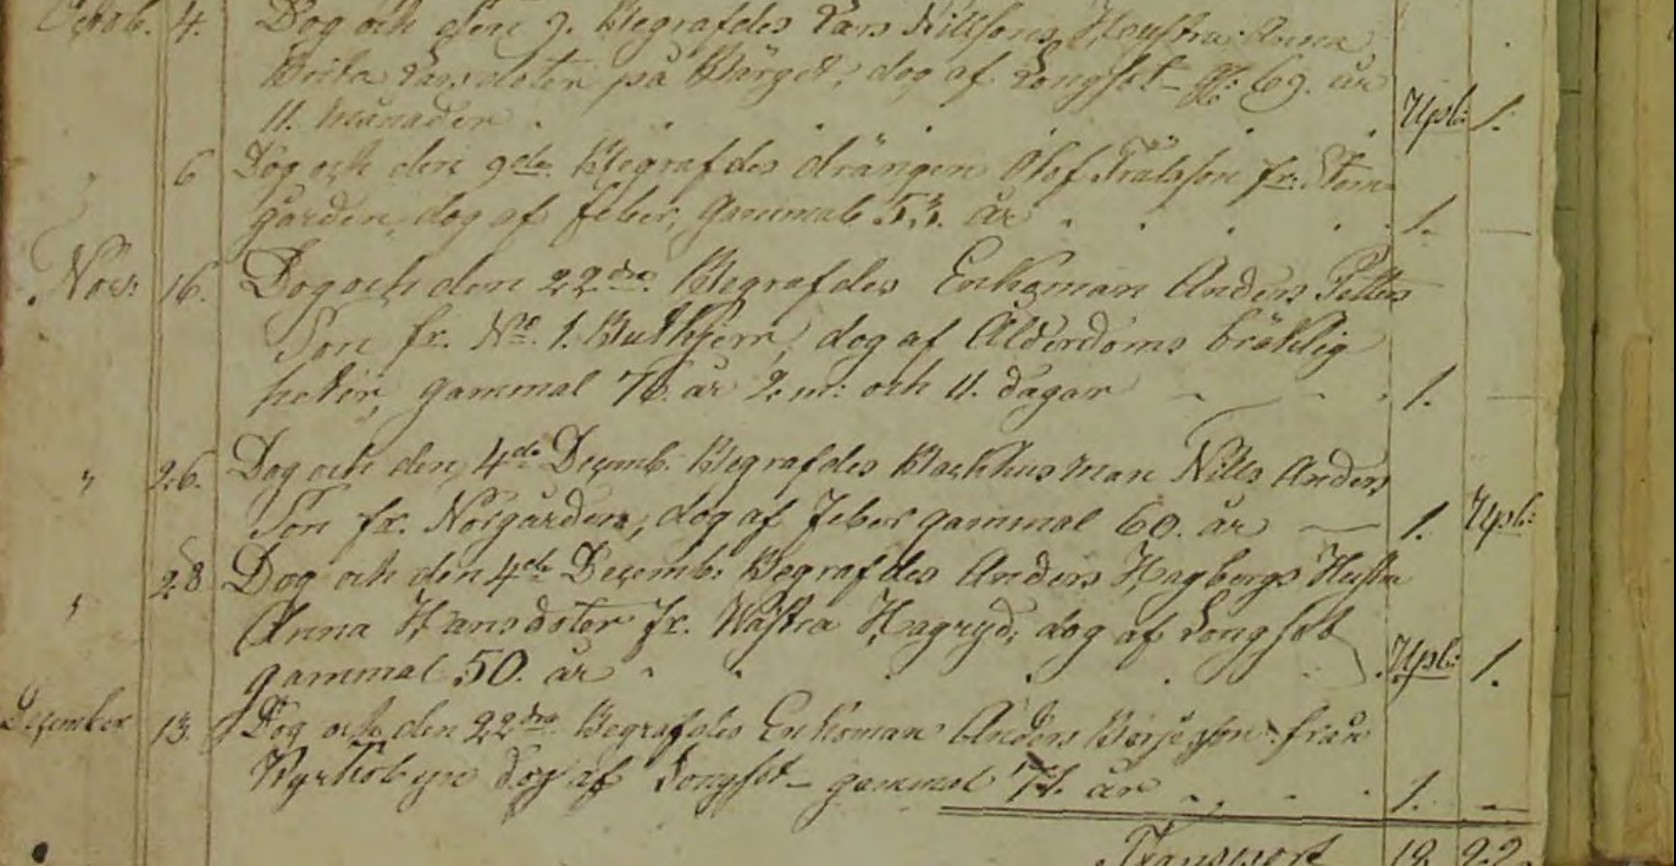 Octob. 4. Dog och den 9. Begrafdes Lars Nillsons Hustru Anna
Brita Larsdoter på Bärget, dog af Longsot 69. år
11. månader Upl: 1.
6 Dog och den 9de Begrafdes drängen Olof fr: Stom
gården, dog af feber, gammal 53. år 1. —
Nov: 16. Dog och den 22dra Begrafdes Enkoman Anders Petters
Son fr. No. 1. dog af Ålderdoms bräklig
heter, gammal 76. år 2. m: och 11. dagar 1. —
" 26. Dog och den 4de Decemb. Begrafdes Backhusman Nills Anders
Son fr. Norgården, dog af Feber gammal 60. år — 1. Upl:
" 28 Dog och den 4de Decemb: Begrafdes Anders Hagbergs Hustru
Anna Hansdoter fr. Wästra Hagryd, dog af Longsot
gammal 50. år Upl: 1.
December 13. Dog och den 22dra Begrafdes Enkoman Anders Börjesson från
dog af Longsot – gammal 71. år 1. —
Transport 19. 22.